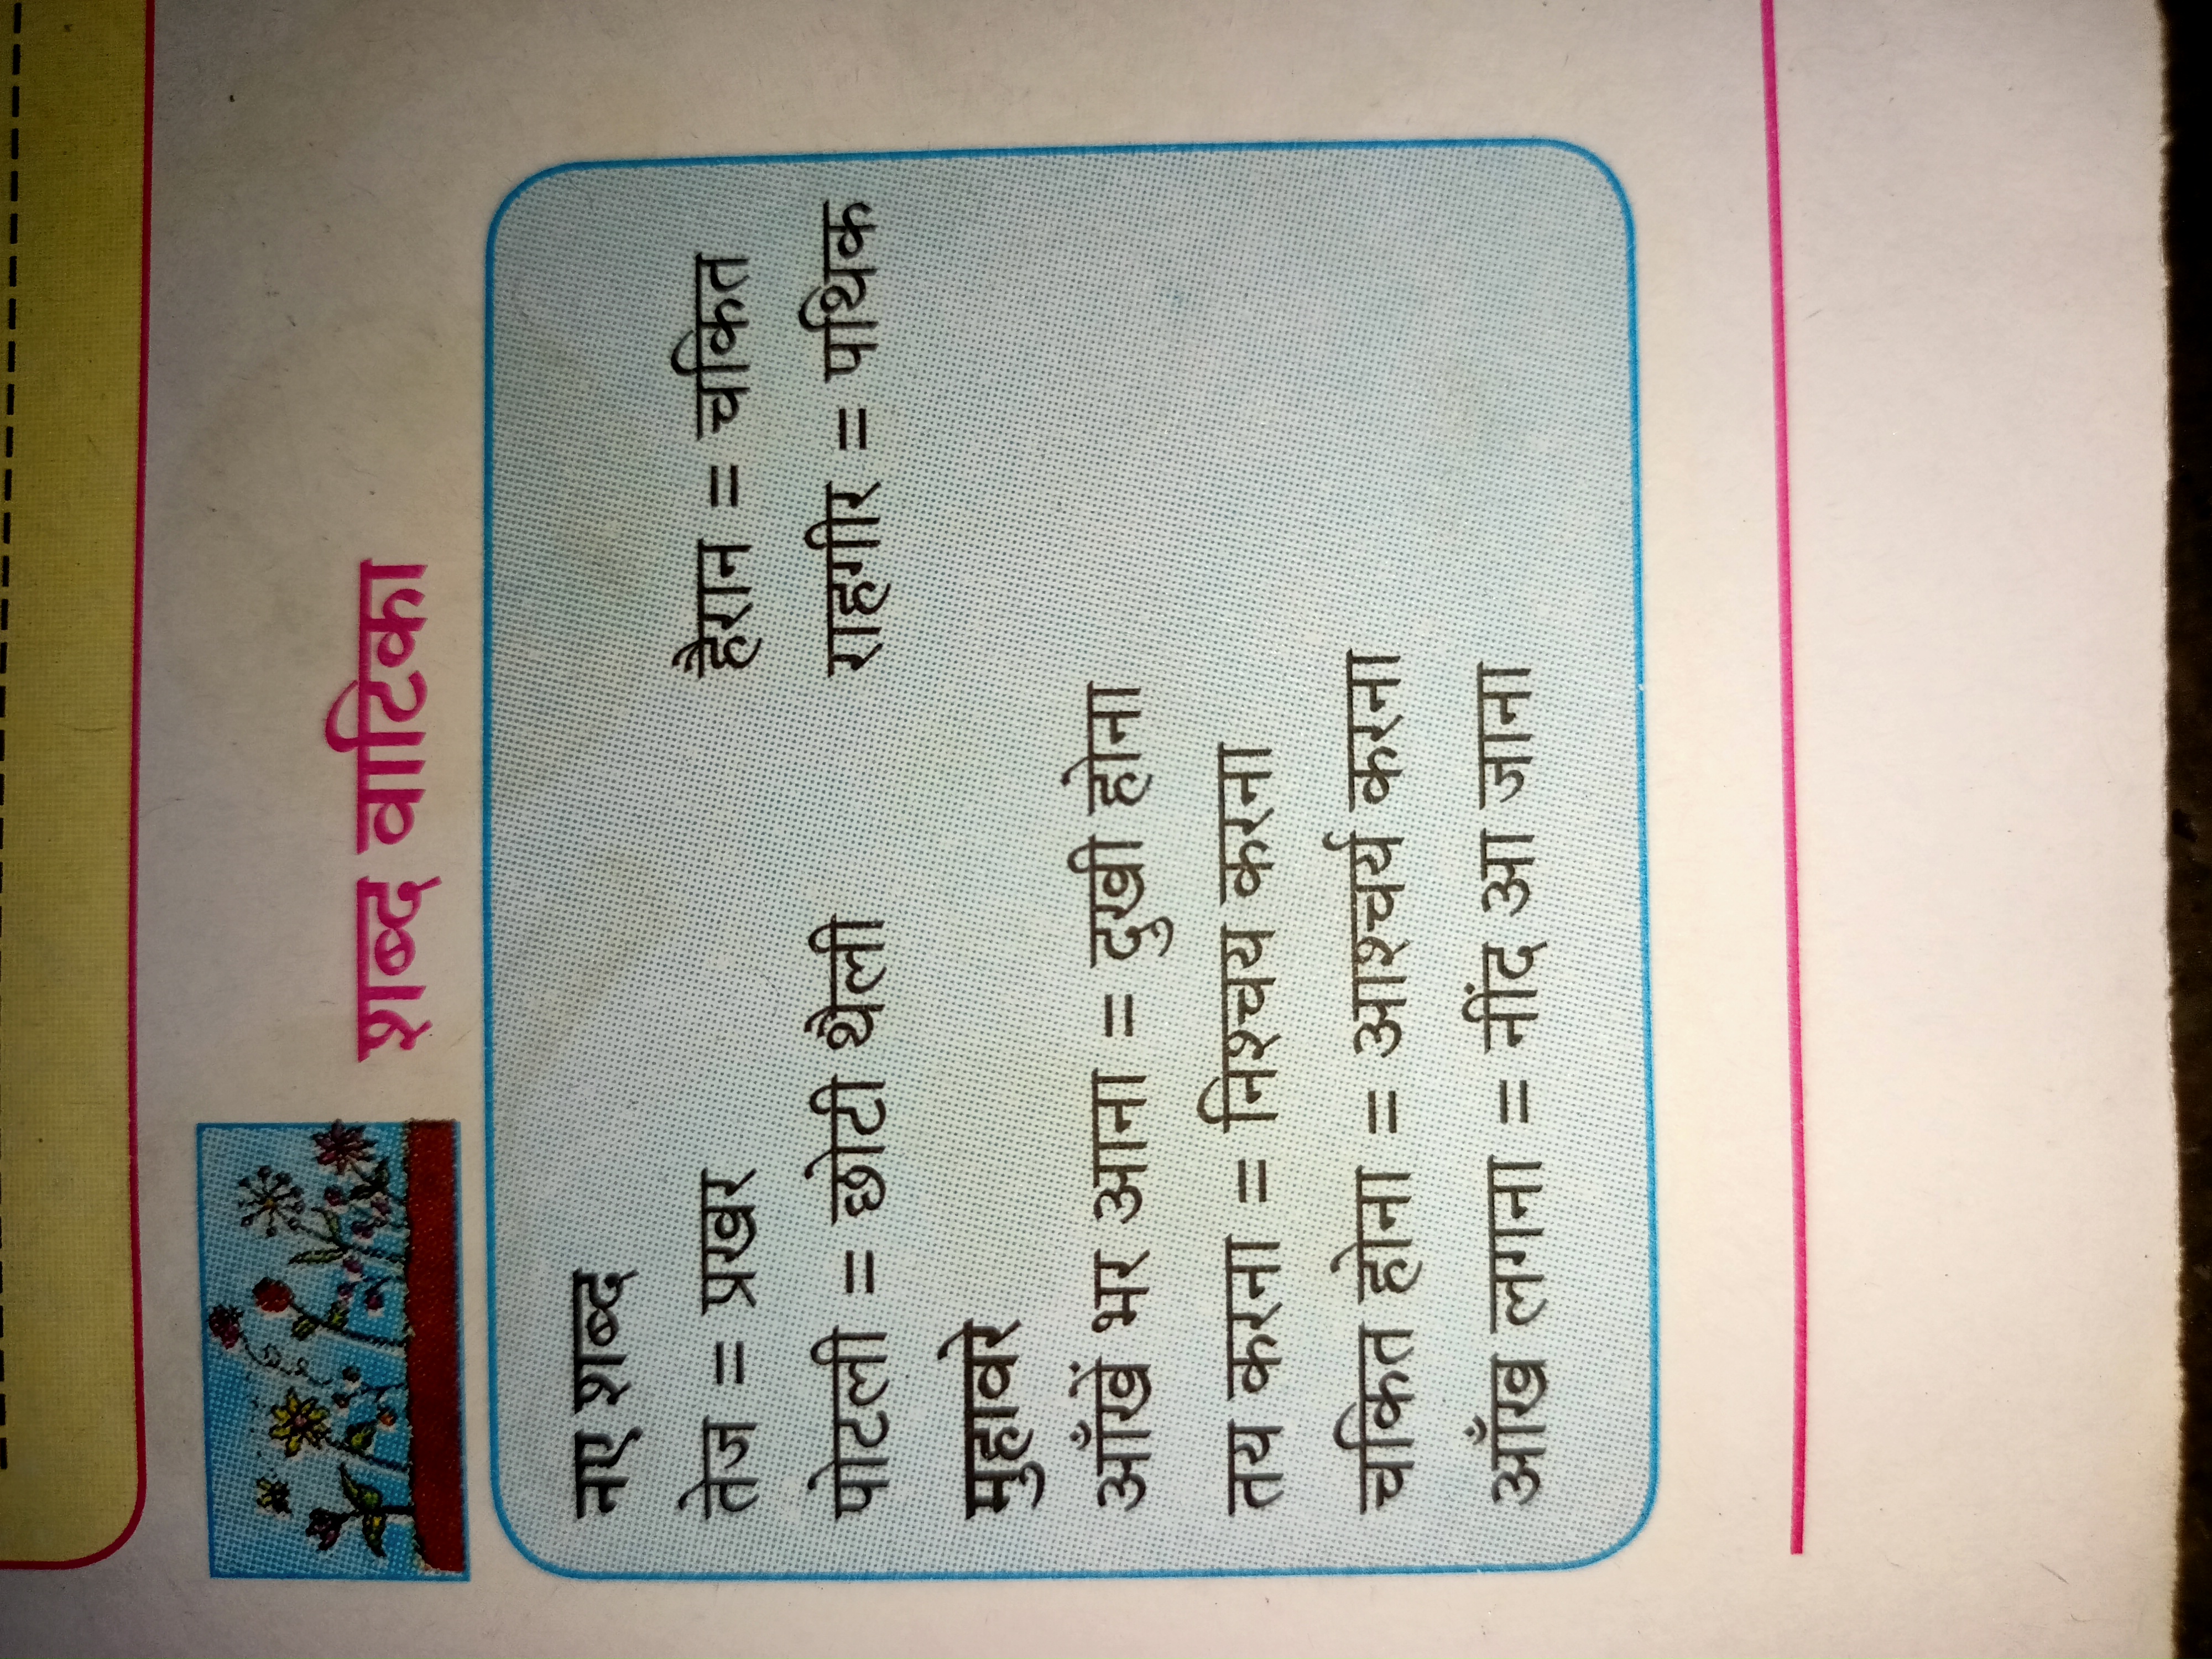 शब्द वाटिका
नए शब्द
तेज = प्रखर हैरान = चकित
पोटली = छोटी थैली राहगीर = पथिक
मुहावरे
आँखें भर आना = दुखी होना
तय करना = निश्चय करना
चकित होना = आश्चर्य करना
आँख लगना = नींद आ जाना